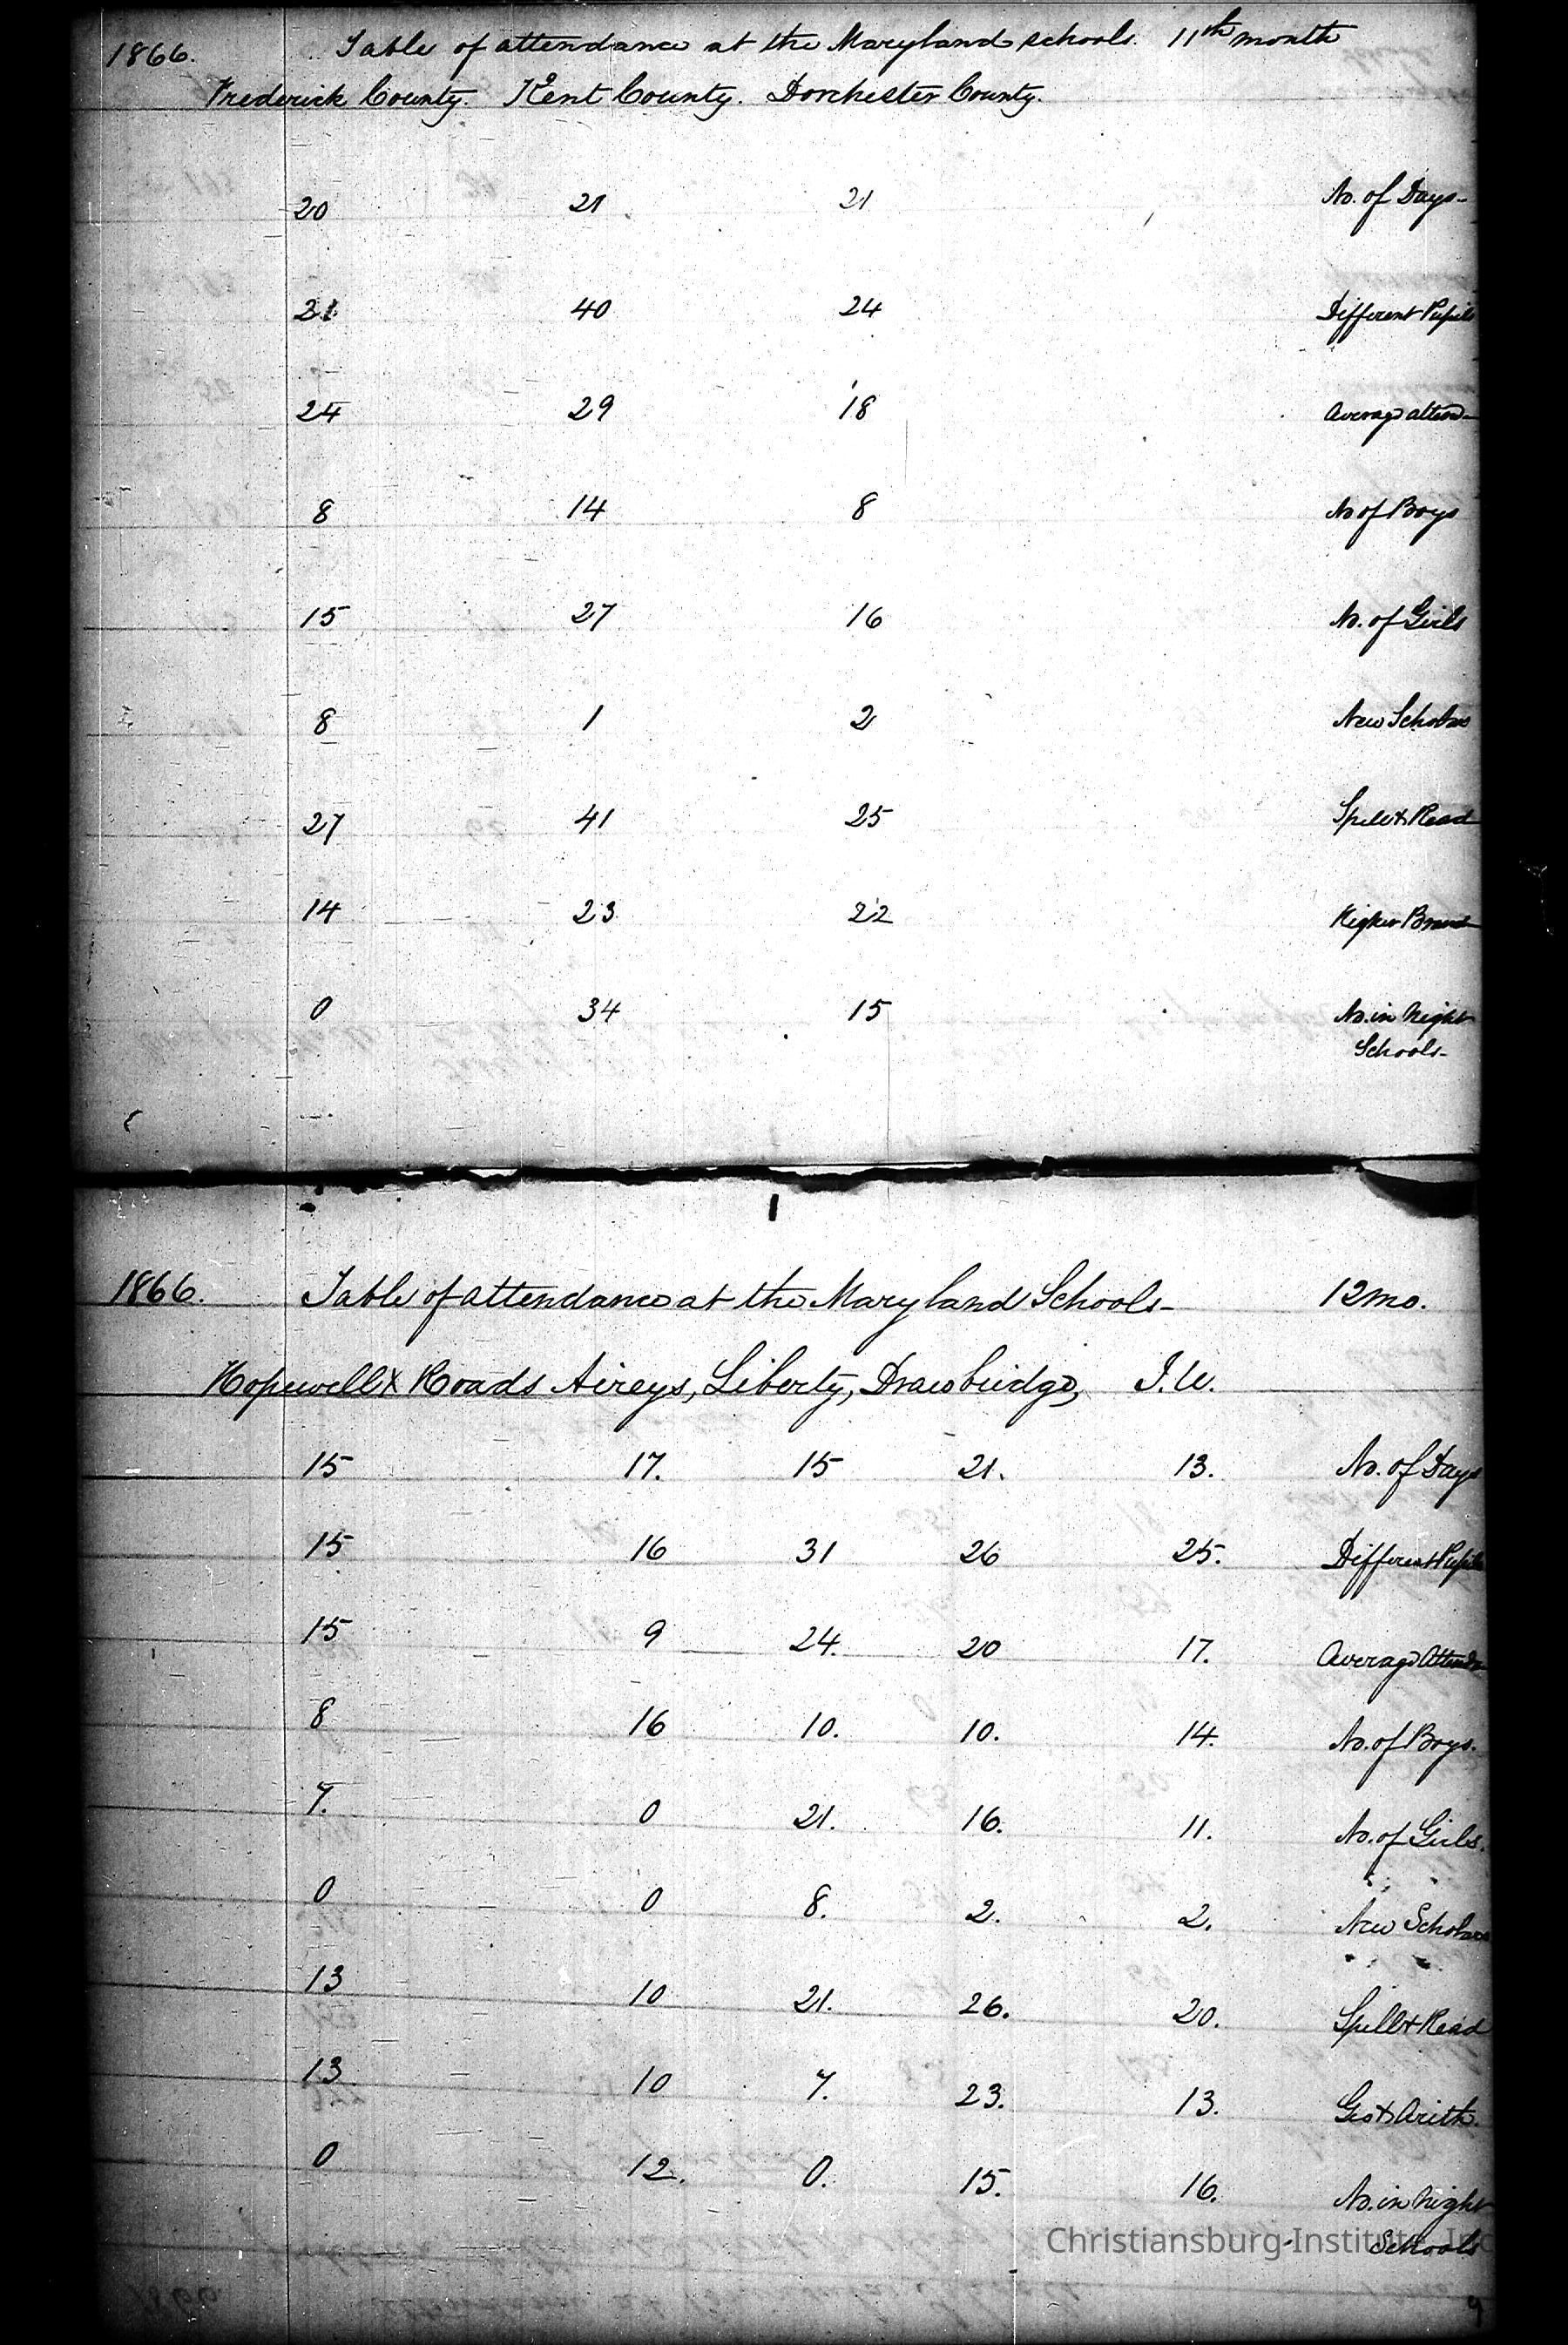 1866. Table of attendance at the Maryland schools. 11th month
Frederick County. Kent County. Dorchester County.
20 21 21 No. of Days-
21 40 24 Different Pupils
24 29 18 Average attend-
8 14 8 No of Boys
15 27 16 No. of Girls
8 1 2 New Scholars
27 41 25 Spell & Read
14 23 22 Higher Branch
0 34 15 No. in Night
Schools-
1866. Table of attendance at the Maryland Schools- 12mo.
Hopewell X Roads Aireys, Liberty, Drawbridge, I.U.
15 17. 15 21. 13. No. of Days
15 16 31 26 25. Different Pupils
15 9 24. 20 17. Average Attend-
8 16 10. 10. 14. No. of Boys.
7. 0 21. 16. 11. No. of Girls.
0 0 8. 2. 2. New Scholars
13 10 21. 26. 20. Spell & Read
13 10 7. 23. 13. Geo & Arith.
0 12. 0. 15. 16. No. in Night
Schools
Christiansburg Institute, Inc